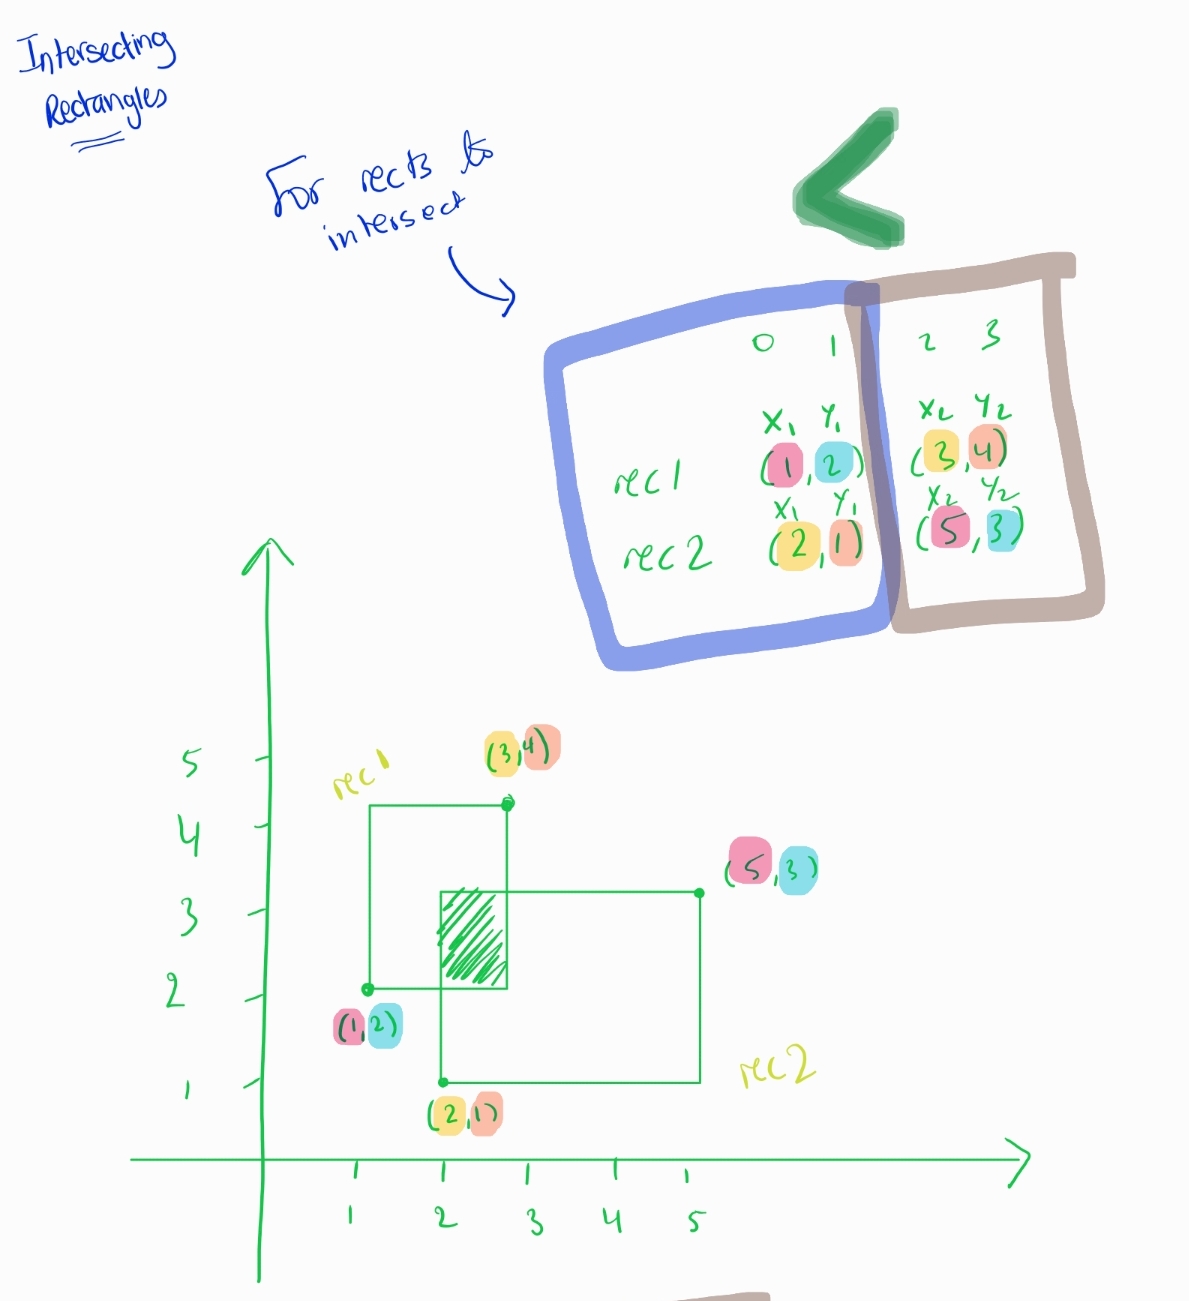 Intersecting
Rectangles
For rects to
intersect
<
0 1 2 3
X₁ Y₁ X₂ Y₂
rec1 (1, 2) (3, 4)
X₁ Y₁ X₂ Y₂
rec2 (2, 1) (5, 3)
5
rec1
(3,4)
4
(5,3)
3
2
(1,2)
rec2
1
(2,1)
1 2 3 4 5